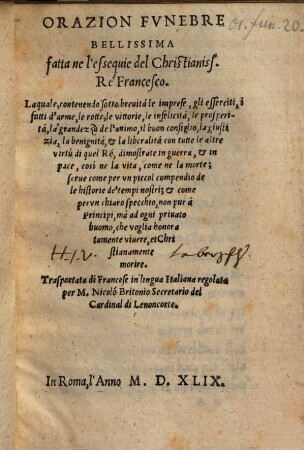 01. fun. 20.
ORAZION FVNEBRE
BELLISSIMA
fatta ne l'essequie del Christianiss.
Re Francesco.
Laquale, contenendo sotto breuità le imprese, gli esserciti, i
fatti d'arme, le rotte, le vittorie, le infelicità, le prosperi-
tá, la grandezza de l'animo, il buon consiglio, la giusti
zia, la benignità, & la liberalità con tutte le altre
virtù di quel Ré, dimostrate in guerra, & in
pace, così ne la vita, come ne la morte;
serue come per vn piccol compendio de
le historie de' tempi nostri; & come
per vn chiaro specchio, non pur à
Principi, mà ad ogni priuato
huomo, che voglia honora
tamente viuere, et Chri
stianamente
morire.
Trasportata di Francese in lingua Italiana regolata
per M. Nicolò Britonio Secretario del
Cardinal di Lenoncorte.
In Roma, l'Anno M. D. XLIX.